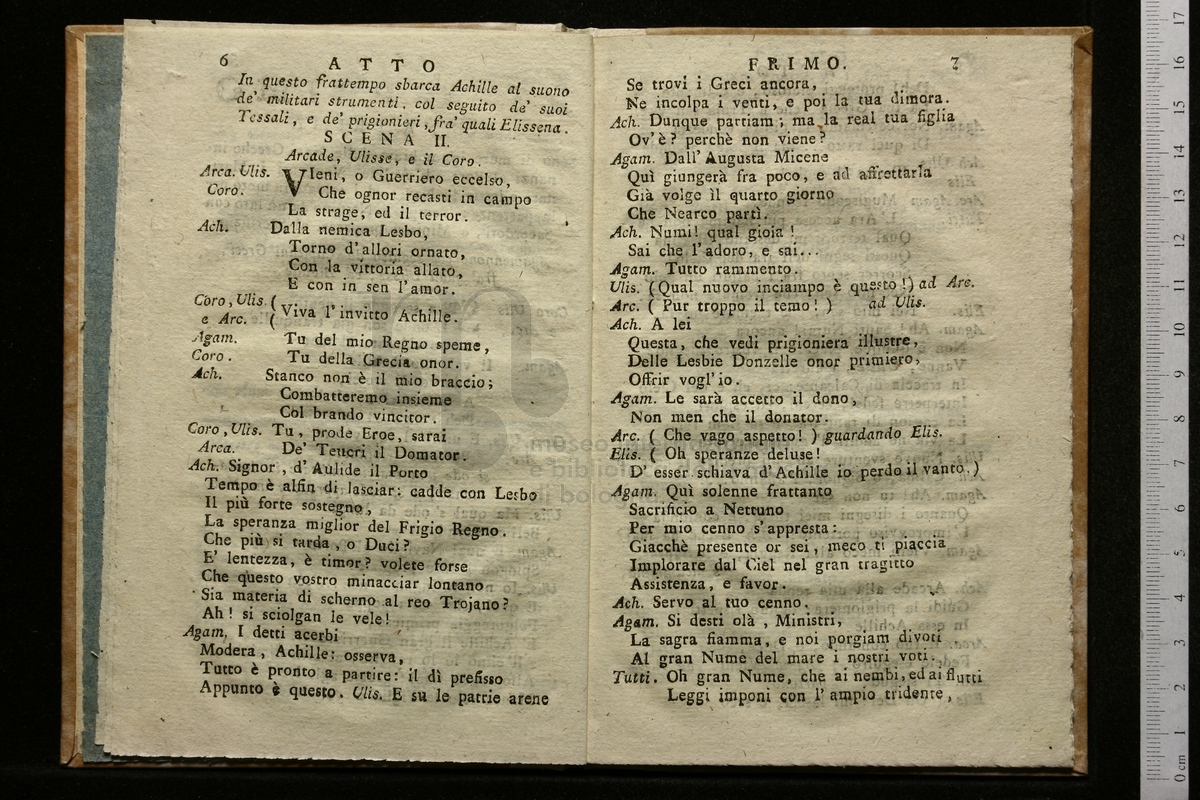 6
ATTO
In questo frattempo sbarca Achille al suono
de' militari strumenti, col seguito de' suoi
Tessali, e de' prigionieri, fra' quali Elissena.
SCENA II.
Arcade, Ulisse, e il Coro.
Arca. Ulis. VIeni, o Guerriero eccelso,
Coro. Che ognor recasti in campo
La strage, ed il terror.
Ach. Dalla nemica Lesbo,
Torno d'allori ornato,
Con la vittoria allato,
E con in sen l'amor.
Coro, Ulis. (
e Arc. ( Viva l'invitto Achille.
Agam. Tu del mio Regno speme,
Coro. Tu della Grecia onor.
Ach. Stanco non è il mio braccio;
Combatteremo insieme
Col brando vincitor.
Coro, Ulis. Tu, prode Eroe, sarai
Arca. De' Teucri il Domator.
Ach. Signor, d'Aulide il Porto
Tempo è alfin di lasciar: cadde con Lesbo
Il più forte sostegno,
La speranza miglior del Frigio Regno.
Che più si tarda, o Duci?
E' lentezza, è timor? volete forse
Che questo vostro minacciar lontano
Sia materia di scherno al reo Trojano?
Ah! si sciolgan le vele!
Agam. I detti acerbi
Modera, Achille: osserva,
Tutto è pronto a partire: il dì prefisso
Appunto è questo. Ulis. E su le patrie arene
FRIMO.
7
Se trovi i Greci ancora,
Ne incolpa i venti, e poi la tua dimora.
Ach. Dunque partiam; ma la real tua figlia
Ov'è? perchè non viene?
Agam. Dall'Augusta Micene
Quì giungerà fra poco, e ad affrettarla
Già volge il quarto giorno
Che Nearco partì.
Ach. Numi! qual gioia!
Sai che l'adoro, e sai...
Agam. Tutto rammento.
Ulis. (Qual nuovo inciampo è questo!) ad Arc.
Arc. ( Pur troppo il temo! ) ad Ulis.
Ach. A lei
Questa, che vedi prigioniera illustre,
Delle Lesbie Donzelle onor primiero,
Offrir vogl'io.
Agam. Le sarà accetto il dono,
Non men che il donator.
Arc. ( Che vago aspetto! ) guardando Elis.
Elis. ( Oh speranze deluse!
D' esser schiava d'Achille io perdo il vanto.)
Agam. Quì solenne frattanto
Sacrificio a Nettuno
Per mio cenno s'appresta:
Giacchè presente or sei, meco ti piaccia
Implorare dal Ciel nel gran tragitto
Assistenza, e favor.
Ach. Servo al tuo cenno.
Agam. Si desti olà, Ministri,
La sagra fiamma, e noi porgiam divoti
Al gran Nume del mare i nostri voti.
Tutti. Oh gran Nume, che ai nembi, ed ai flutti
Leggi imponi con l'ampio tridente,